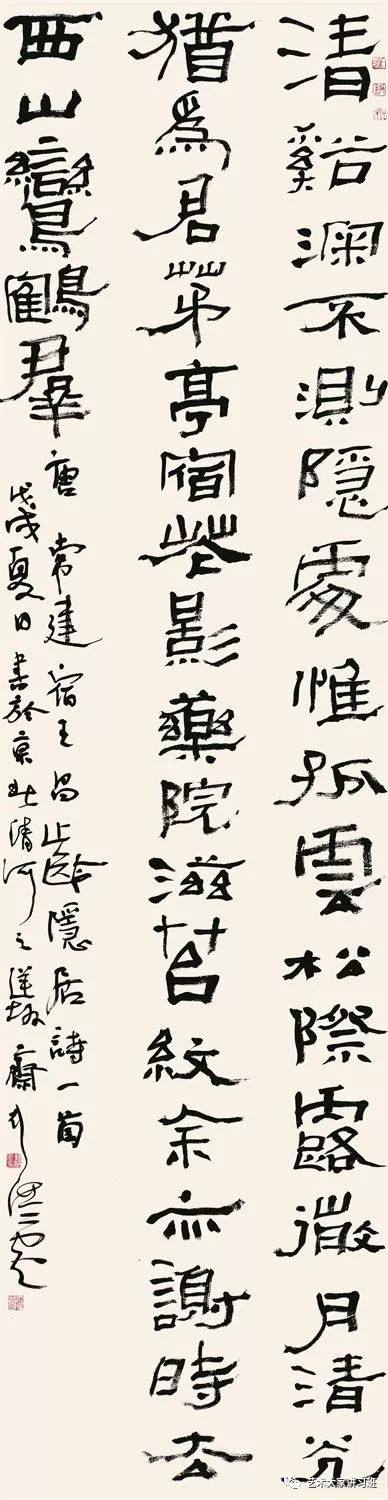 清谿深不測隱處惟孤雲松際露微月清光
猶爲君茅亭宿花影藥院滋苔紋余亦謝時去
西山鸞鶴羣唐常建宿王昌齡隱居詩一首
戊戌夏日書於京北清河之齋
艺术大家讲习班